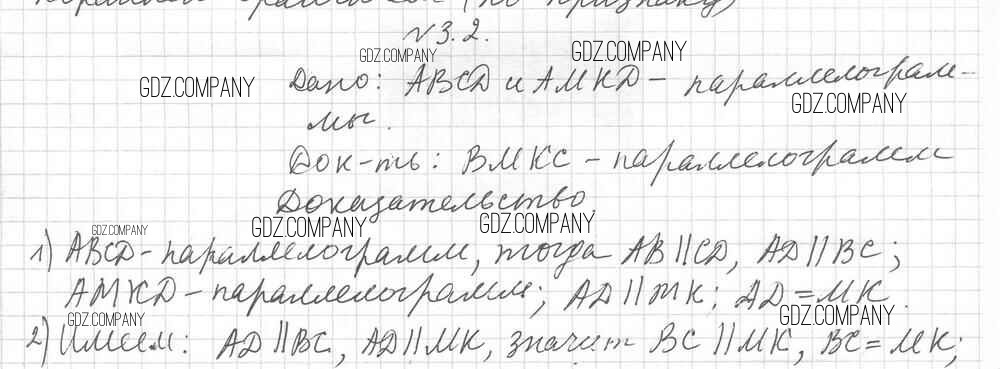 параллелограмм (по признаку)
№3.2.
GDZ.COMPANY GDZ.COMPANY
GDZ.COMPANY Дано: ABCD и AMKD – параллелограм-
GDZ.COMPANY
мы.
Док-ть: BMKC – параллелограмм
Доказательство
GDZ.COMPANY GDZ.COMPANY GDZ.COMPANY
1) ABCD – параллелограмм, тогда AB || CD, AD || BC;
AMKD – параллелограмм; AD || MK; AD = MK.
GDZ.COMPANY GDZ.COMPANY
2) Имеем: AD || BC, AD || MK, значит BC || MK, BC = MK;